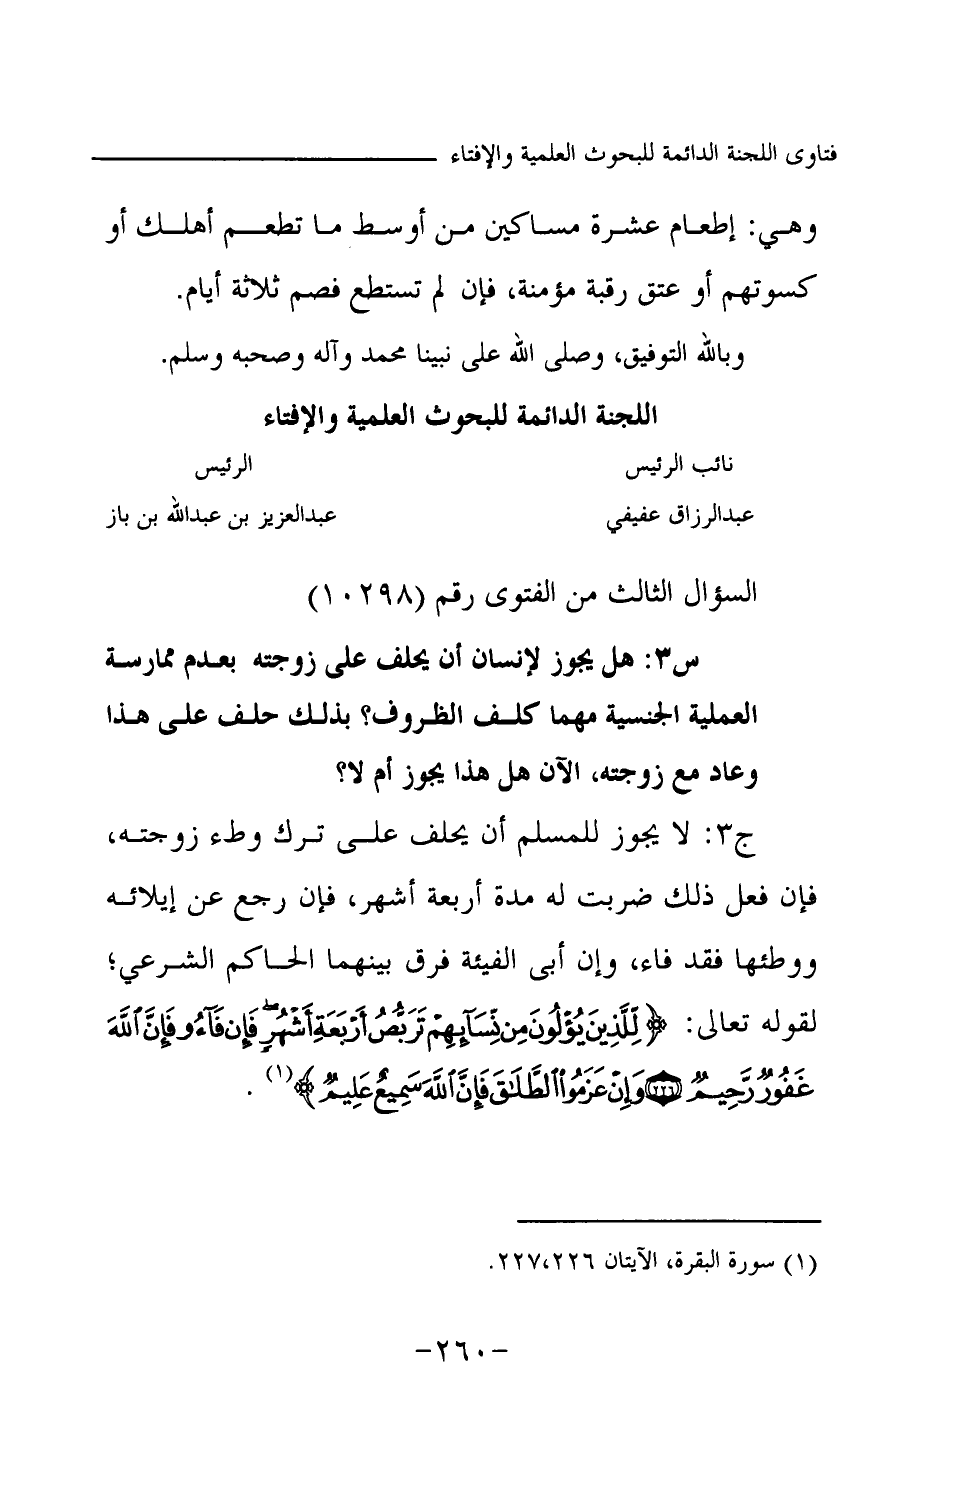 فتاوى اللجنة الدائمة للبحوث العلمية والإفتاء
وهي: إطعام عشرة مساكين من أوسط ما تطعم أهلك أو
كسوتهم أو عتق رقبة مؤمنة، فإن لم تستطع فصم ثلاثة أيام.
وبالله التوفيق، وصلى الله على نبينا محمد وآله وصحبه وسلم.
اللجنة الدائمة للبحوث العلمية والإفتاء
نائب الرئيس الرئيس
عبدالرزاق عفيفي عبدالعزيز بن عبدالله بن باز
السؤال الثالث من الفتوى رقم (١٠٢٩٨)
س٣: هل يجوز لإنسان أن يحلف على زوجته بعدم ممارسة
العملية الجنسية مهما كلف الظروف؟ بذلك حلف على هذا
وعاد مع زوجته، الآن هل هذا يجوز أم لا؟
ج٣: لا يجوز للمسلم أن يحلف على ترك وطء زوجته،
فإن فعل ذلك ضربت له مدة أربعة أشهر، فإن رجع عن إيلائه
ووطئها فقد فاء، وإن أبى الفيئة فرق بينهما الحاكم الشرعي؛
لقوله تعالى: ﴿لِّلَّذِينَ يُؤۡلُونَ مِن نِّسَآئِهِمۡ تَرَبُّصُ أَرۡبَعَةِ أَشۡهُرٖۖ فَإِن فَآءُو فَإِنَّ ٱللَّهَ
غَفُورٞ رَّحِيمٞ ٢٢٦ وَإِنۡ عَزَمُواْ ٱلطَّلَٰقَ فَإِنَّ ٱللَّهَ سَمِيعٌ عَلِيمٞ﴾ (١) .
(١) سورة البقرة، الآيتان ٢٢٦،٢٢٧.
-٢٦٠-